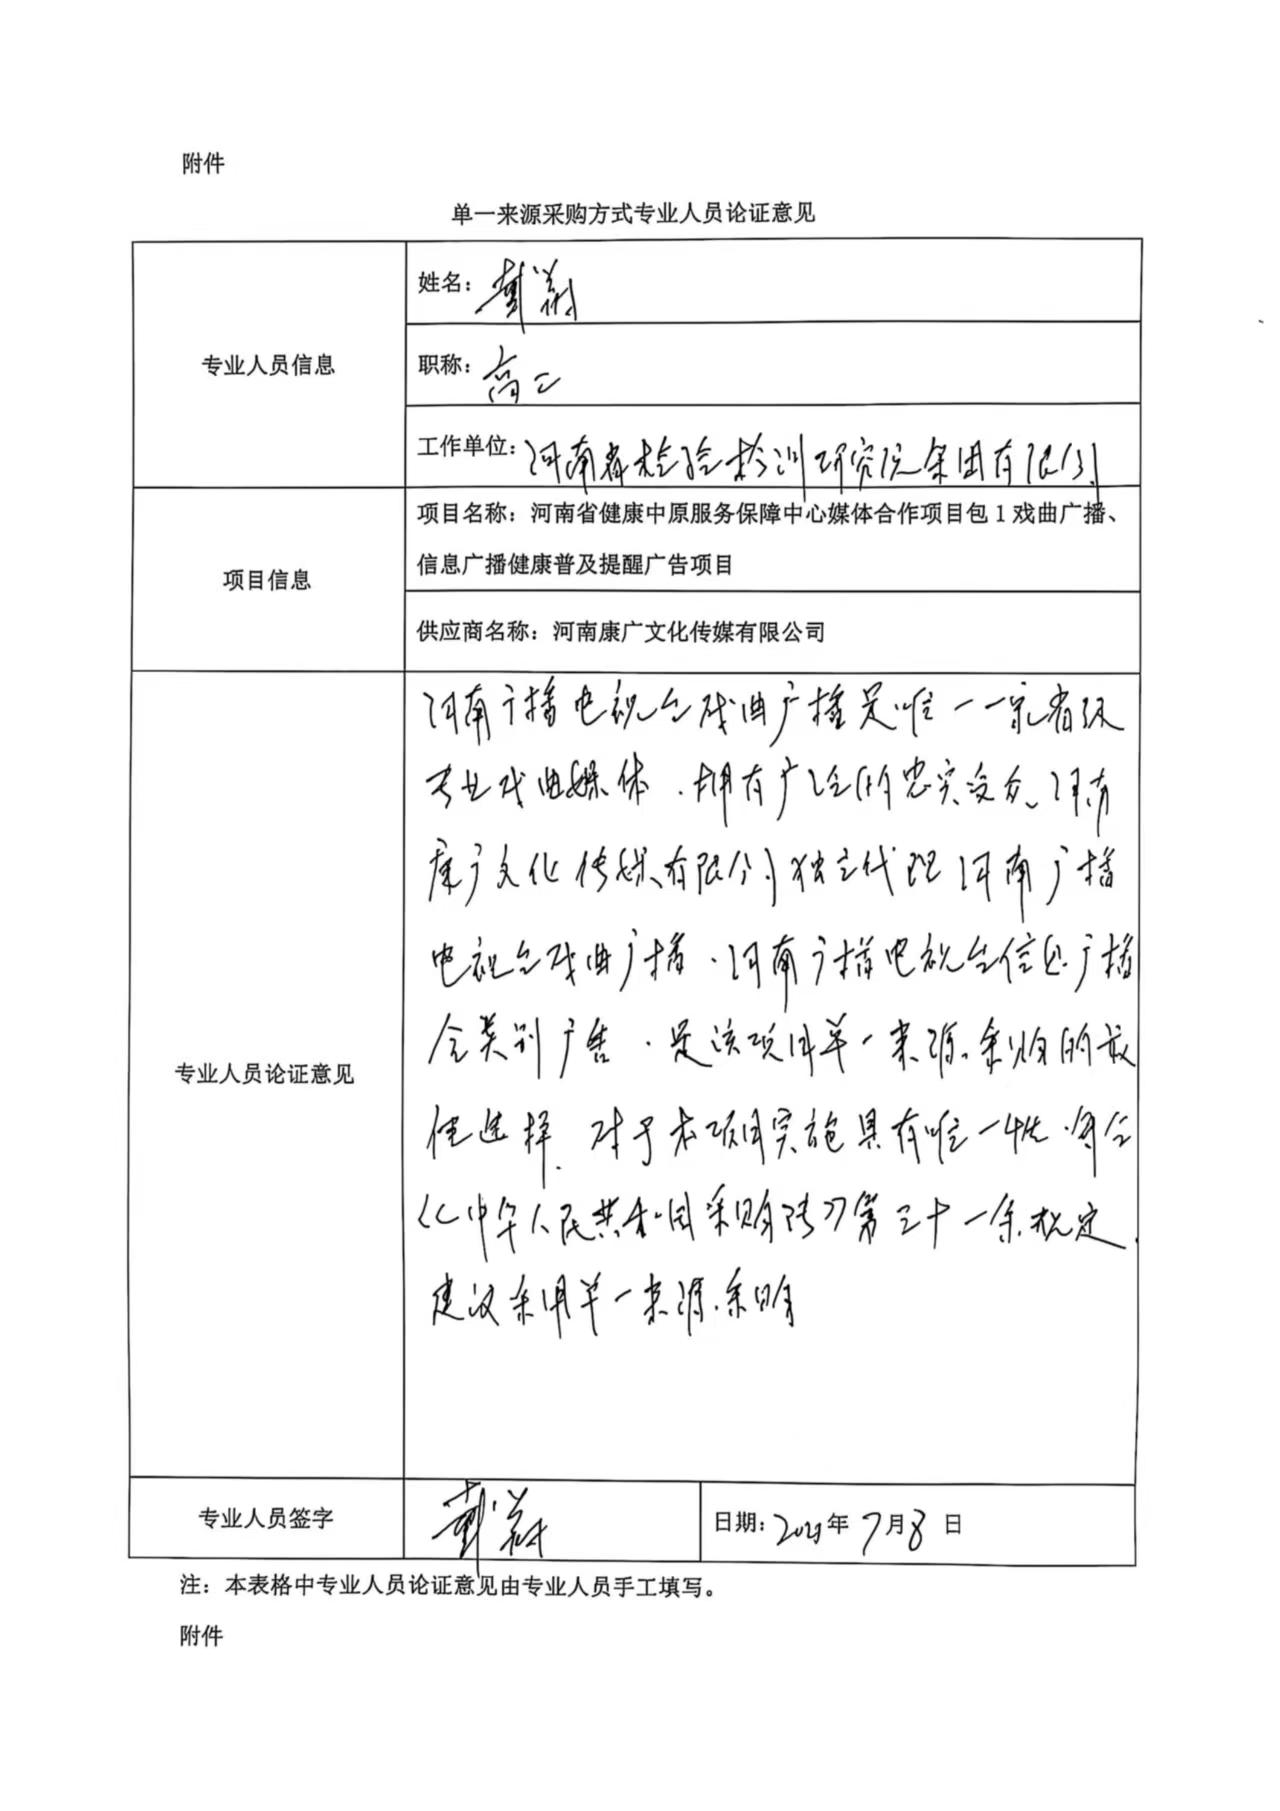 附件
单一来源采购方式专业人员论证意见
专业人员信息
姓名：戴
职称：高工
工作单位：河南省检验检测研究院集团有限公司
项目信息
项目名称：河南省健康中原服务保障中心媒体合作项目包1戏曲广播、
信息广播健康普及提醒广告项目
供应商名称：河南康广文化传媒有限公司
专业人员论证意见
河南广播电视台戏曲广播是唯一一家省级
专业戏曲媒体，拥有广泛的忠实受众、河南
康广文化传媒有限公司独立代理河南广播
电视台戏曲广播、河南广播电视台信息广播
全类别广告，是该项目单一来源采购的最
佳选择，对于本项目实施具有唯一性，符合
《中华人民共和国采购法》第三十一条规定，
建议采用单一来源采购
专业人员签字
戴
日期：年7月8日
注：本表格中专业人员论证意见由专业人员手工填写。
附件